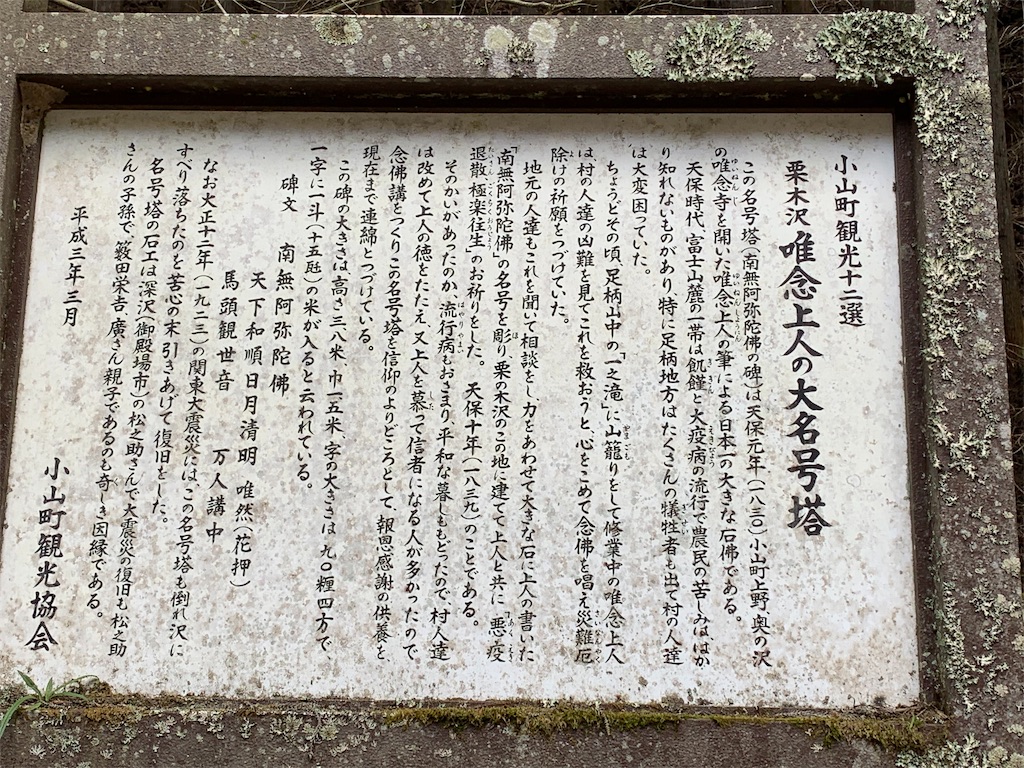 小山町観光十二選
栗木沢 唯念上人の大名号塔
この名号塔(南無阿弥陀佛の碑)は天保元年(一八三〇)小山町上野、奥の沢
の唯念寺を開いた唯念上人の筆による日本一の大きな石佛である。
天保時代、富士山麓の一帯は飢饉と大疫病の流行で農民の苦しみは、はか
り知れないものがあり、特に足柄地方はたくさんの犠牲者も出て村の人達
は大変困っていた。
ちょうどその頃、足柄山中の「一之滝」に山籠りをして修業中の唯念上人
は、村の人達の凶難を見てこれを救おうと、心をこめて念佛を唱え災難厄
除けの祈願をつづけていた。
地元の人達もこれを聞いて相談をし、力をあわせて大きな石に上人の書いた
「南無阿弥陀佛」の名号を彫り、栗の木沢のこの地に建てて上人と共に「悪疫
退散、極楽往生」のお祈りをした。天保十年(一八三九)のことである。
そのかいがあったのか、流行病もおさまり、平和な暮しももどったので、村人達
は改めて上人の徳をたたえ、又上人を慕って信者になる人が多かったので
念佛講をつくり、この名号塔を信仰のよりどころとして、報恩感謝の供養を、
現在まで連綿とつづけている。
この碑の大きさは高さ三・八米、巾一・五米、字の大きさは、九〇糎四方で、
一字に一斗(十五瓩)の米が入ると云われている。
碑文 南無阿弥陀佛
天下和順日月清明 唯然(花押)
馬頭観世音 万人講中
なお大正十二年(一九二三)の関東大震災には、この名号塔も倒れ、沢に
すべり落ちたのを苦心の末、引きあげて復旧をした。
名号塔の石工は深沢(御殿場市)の松之助さんで大震災の復旧も松之助
さんの子孫で、籔田栄吉、廣さん親子であるのも奇しき因縁である。
平成三年三月
小山町観光協会